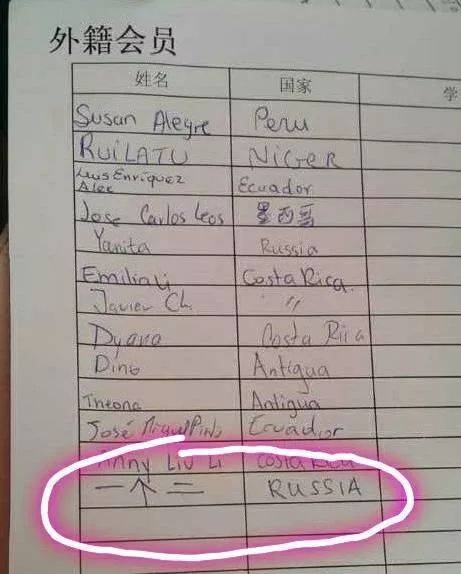 外籍会员
姓名 国家 学
Susan Alegre Peru
RUILATU NIGER
Luis Enriquez Ecuador
Alec
Jose Carlos Leos 墨西哥
Yanita Russia
Emilia Li Costa Rica.
Javier Ch. "
Dyana Costa Rica
Dino Antigua
Antigua
José Miguel Pino Ecuador
Anny Liu Li Costa Rica
一个二 RUSSIA